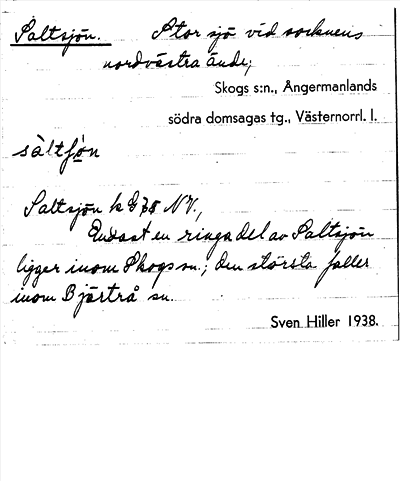 Saltsjön. Stor sjö vid socknens
nordvästra ände;
Skogs s:n., Ångermanlands
södra domsagas tg., Västernorrl. l.
Saltsjön k G 75 NV.,
Endast en ringa del av Saltsjön
ligger inom Skogs sn.; den största faller
inom Bjärtrå sn.
Sven Hiller 1938.